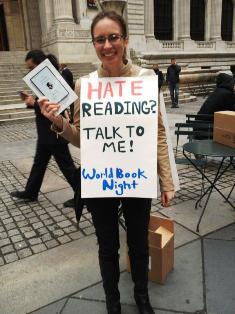 HATE
READING?
TALK TO
ME!
World Book
Night